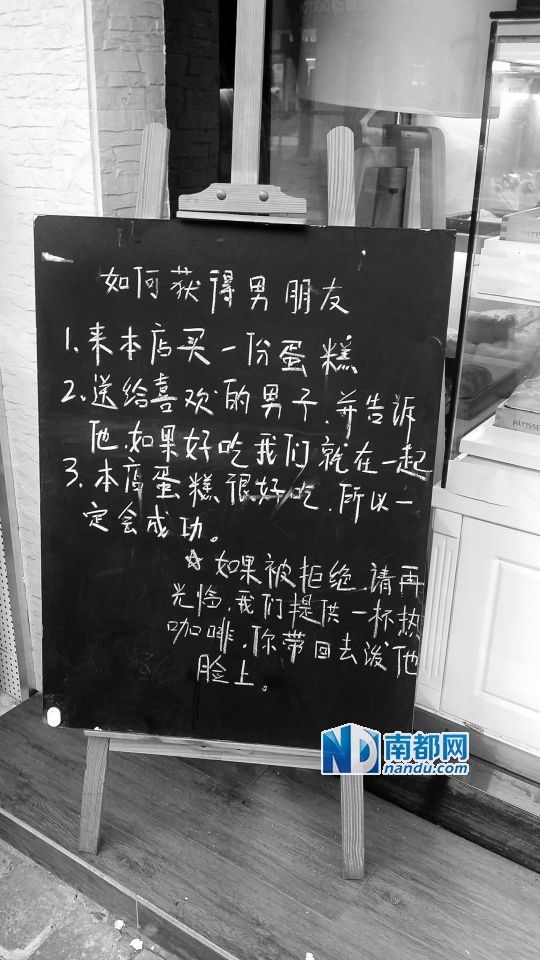 如何获得男朋友
1.来本店买一份蛋糕
2.送给喜欢的男子,并告诉
他,如果好吃我们就在一起
3.本店蛋糕很好吃,所以一
定会成功。
☆如果被拒绝,请再
光临,我们提供一杯热
咖啡,你带回去泼他
脸上。
PÂTISSE
ND南都网
nandu.com